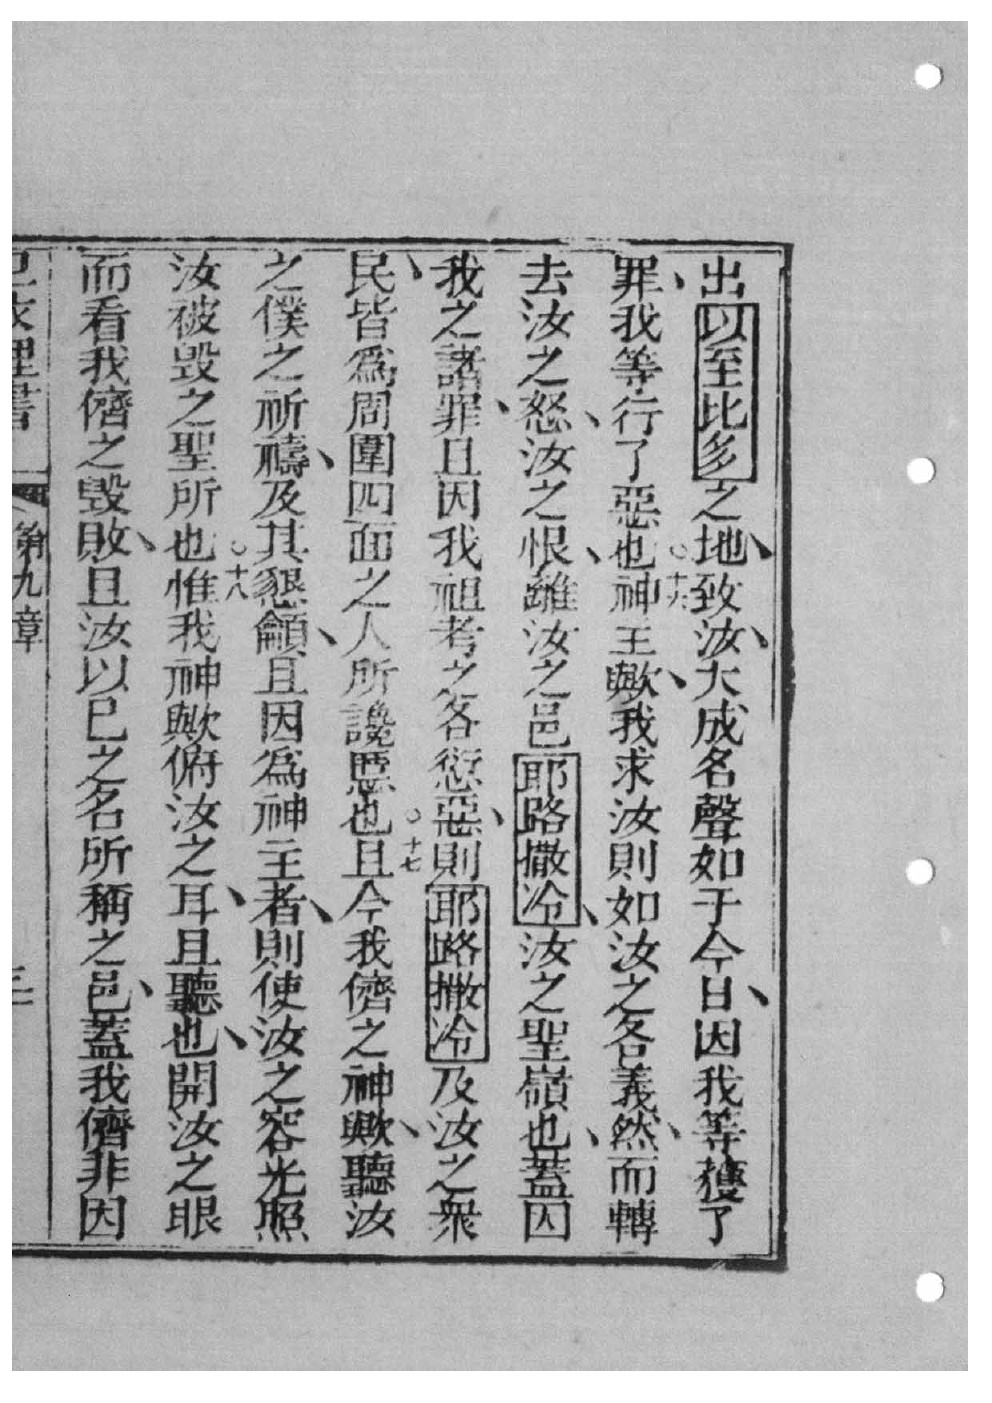 出以至比多之地、致汝、大成名聲如于今日、因我等獲了
罪、我等行了惡也○十六神主歟、我求汝則如汝之各義然、而轉
去汝之怒、汝之恨、離汝之邑耶路撒冷、汝之聖嶺也、蓋因
我之諸罪、且因我祖考之各愆惡、則耶路撒冷及汝之衆
民、皆為周圍四面之人所讒惡也○十七且今我儕之神歟、聽汝
之僕之祈禱、及其懇籲、且因為神主者、則使汝之容光照
汝被毀之聖所也○十八惟我神歟俯汝之耳、且聽也、開汝之眼
而看我儕之毀敗、且汝以已之名所稱之邑、蓋我儕非因
第九章